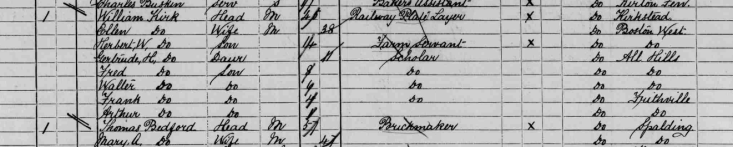 Charles Serv S Bakers Assistant x Do Kirton Fen
1 William Kirk Head M Railway Plate Layer x Do Kirkstead
Ellen Do Wife M 38 Do Boston West
Herbert W. Do Son 14 Farm Servant x Do Do
Gertrude, H., Do Daur 11 Scholar Do All Hills
Fred Do Son 9 Do Do Do
Walter Do Do Do Do Do
Frank Do Do Do Do Frithville
Arthur Do Do Do Do
1 Thomas Bedford Head M Brickmaker x Do Spalding
Mary A. Do Wife M Do Do